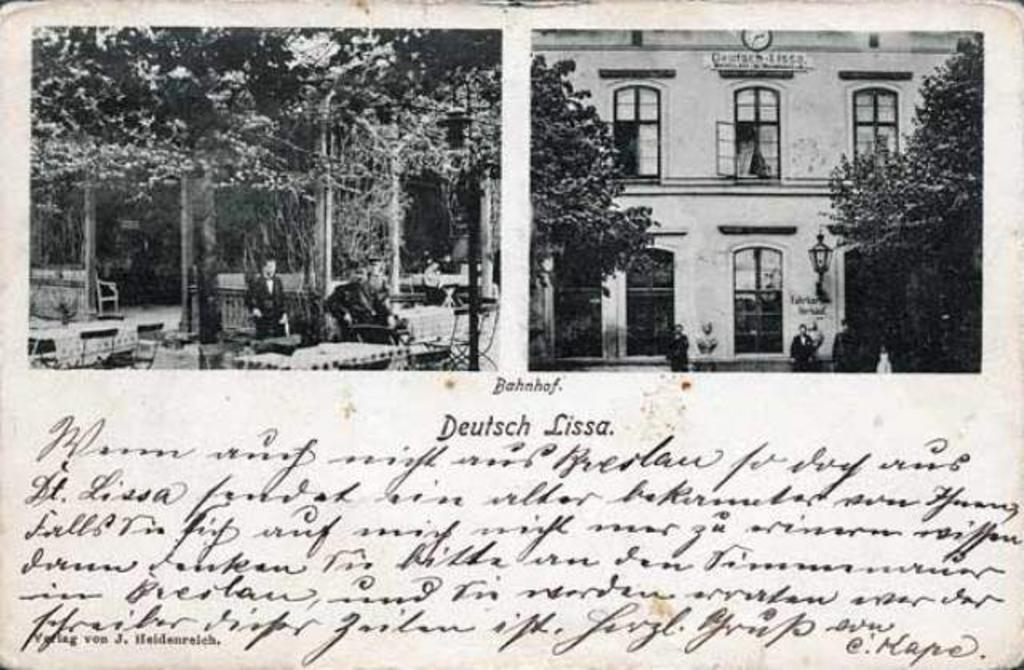 Deutsch-Lissa.
Fahrkarten
Verkauf.
Bahnhof.
Deutsch Lissa.
Wenn auch nicht aus Breslau so doch aus
Dt. Lissa sendet ein alter bekannter von Ihnen,
Falls Sie sich auf mich nicht mer zu erinern wissen
dann denken Sie bitte an den
in Breslau, und Sie werden erraten wer der
schreiber dieser Zeilen ist. Herzl. Gruß von
Verlag von J. Heidenreich.
C. Kape.